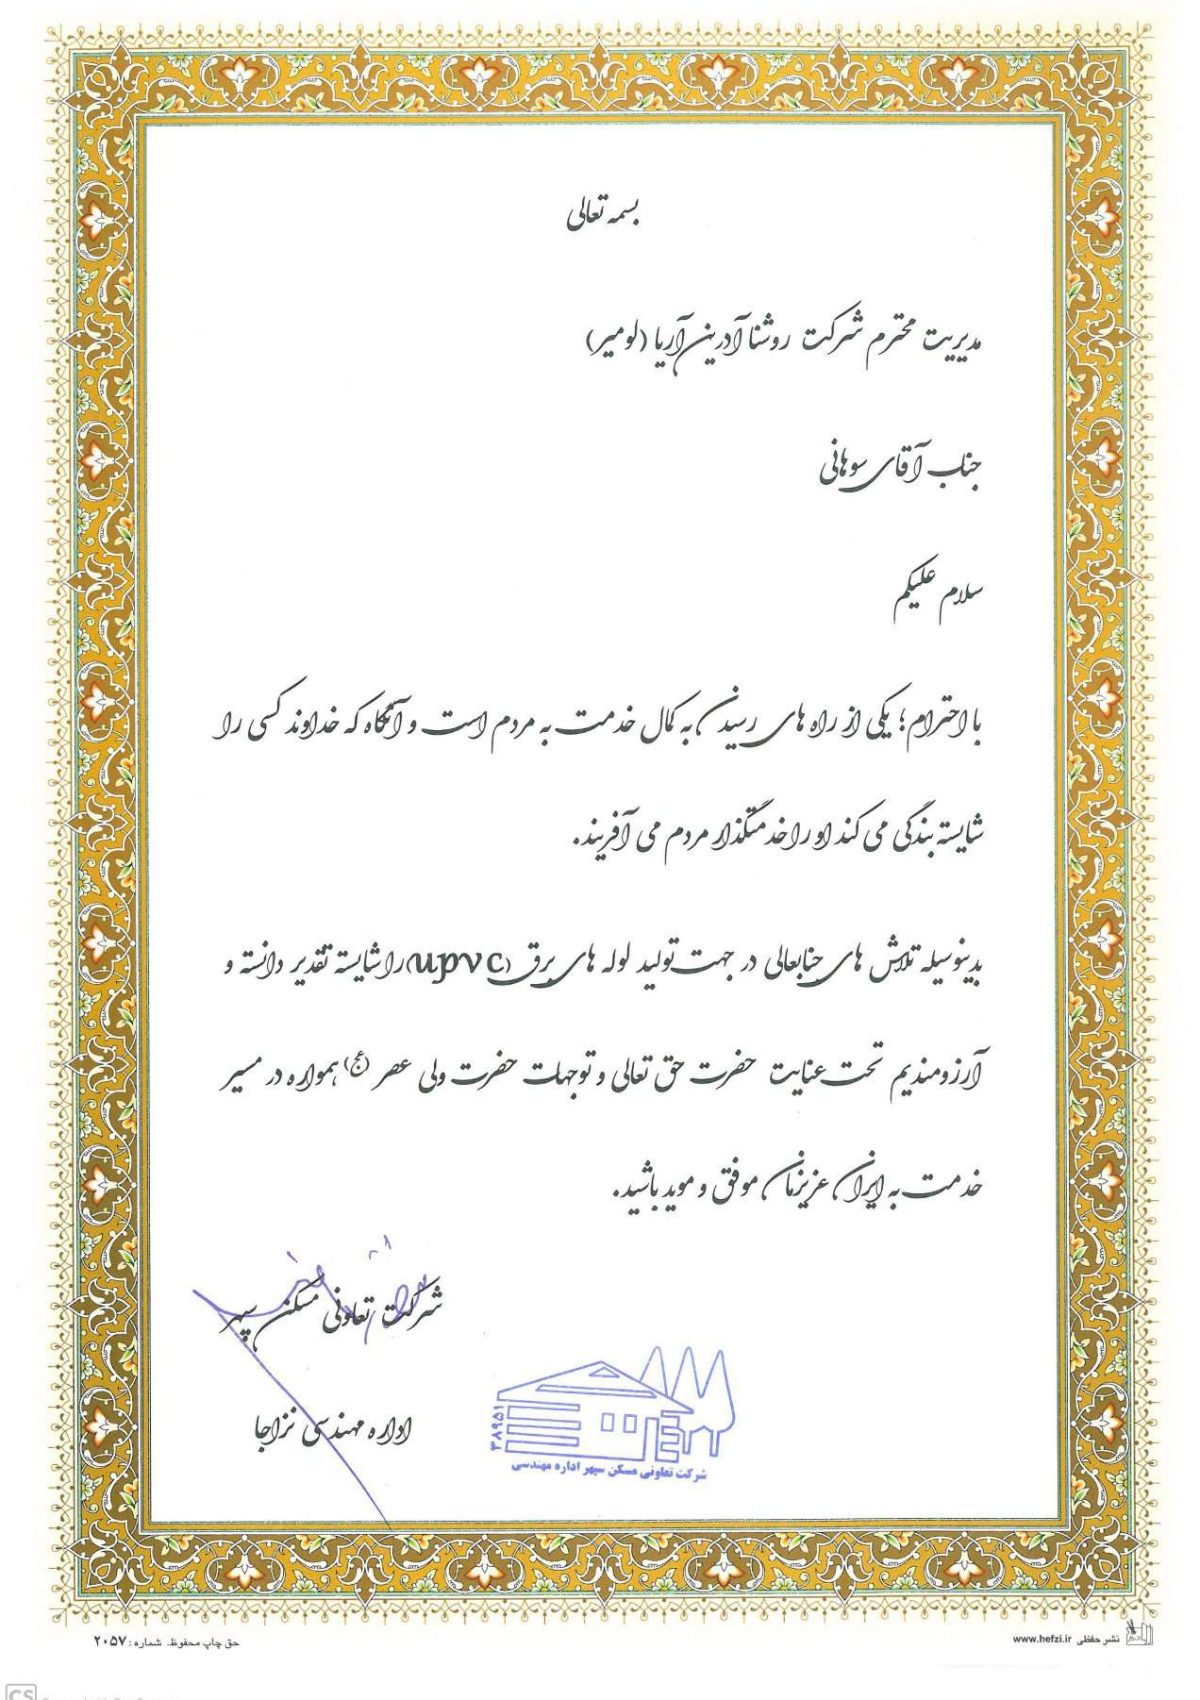 بسمه تعالی
مدیریت محترم شرکت روشنا آدرین آریا (لومیر)
جناب آقای سوهانی
سلام علیکم
با احترام؛ یکی از راه های رسیدن به کمال خدمت به مردم است و آنگاه که خداوند کسی را
شایسته بندگی می کند او را خدمتگذار مردم می آفریند.
بدینوسیله تلاش های جنابعالی در جهت تولید لوله های برق (upvc) را شایسته تقدیر دانسته و
آرزومندیم تحت عنایت حضرت حق تعالی و توجهات حضرت ولی عصر (عج) همواره در مسیر
خدمت به ایران عزیزمان موفق و موید باشید.
شرکت تعاونی مسکن سپهر
اداره مهندسی نزاجا
۳۸۹۵۱
شرکت تعاونی مسکن سپهر اداره مهندسی
حق چاپ محفوظ. شماره: ۲۰۵۷
نشر حفظی www.hefzi.ir
CS